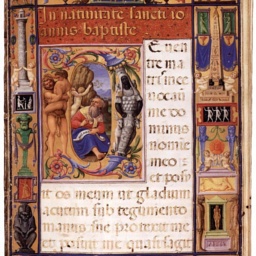 In natiuitate sancti io
annis baptiste
De uen
tre ma
tris mee
uocauit
me do
minus
nomine
meo: 
et posu
it os meum ut gladium
acutum sub tegumento
manus sue protexit me
et posuit me quasi sagit